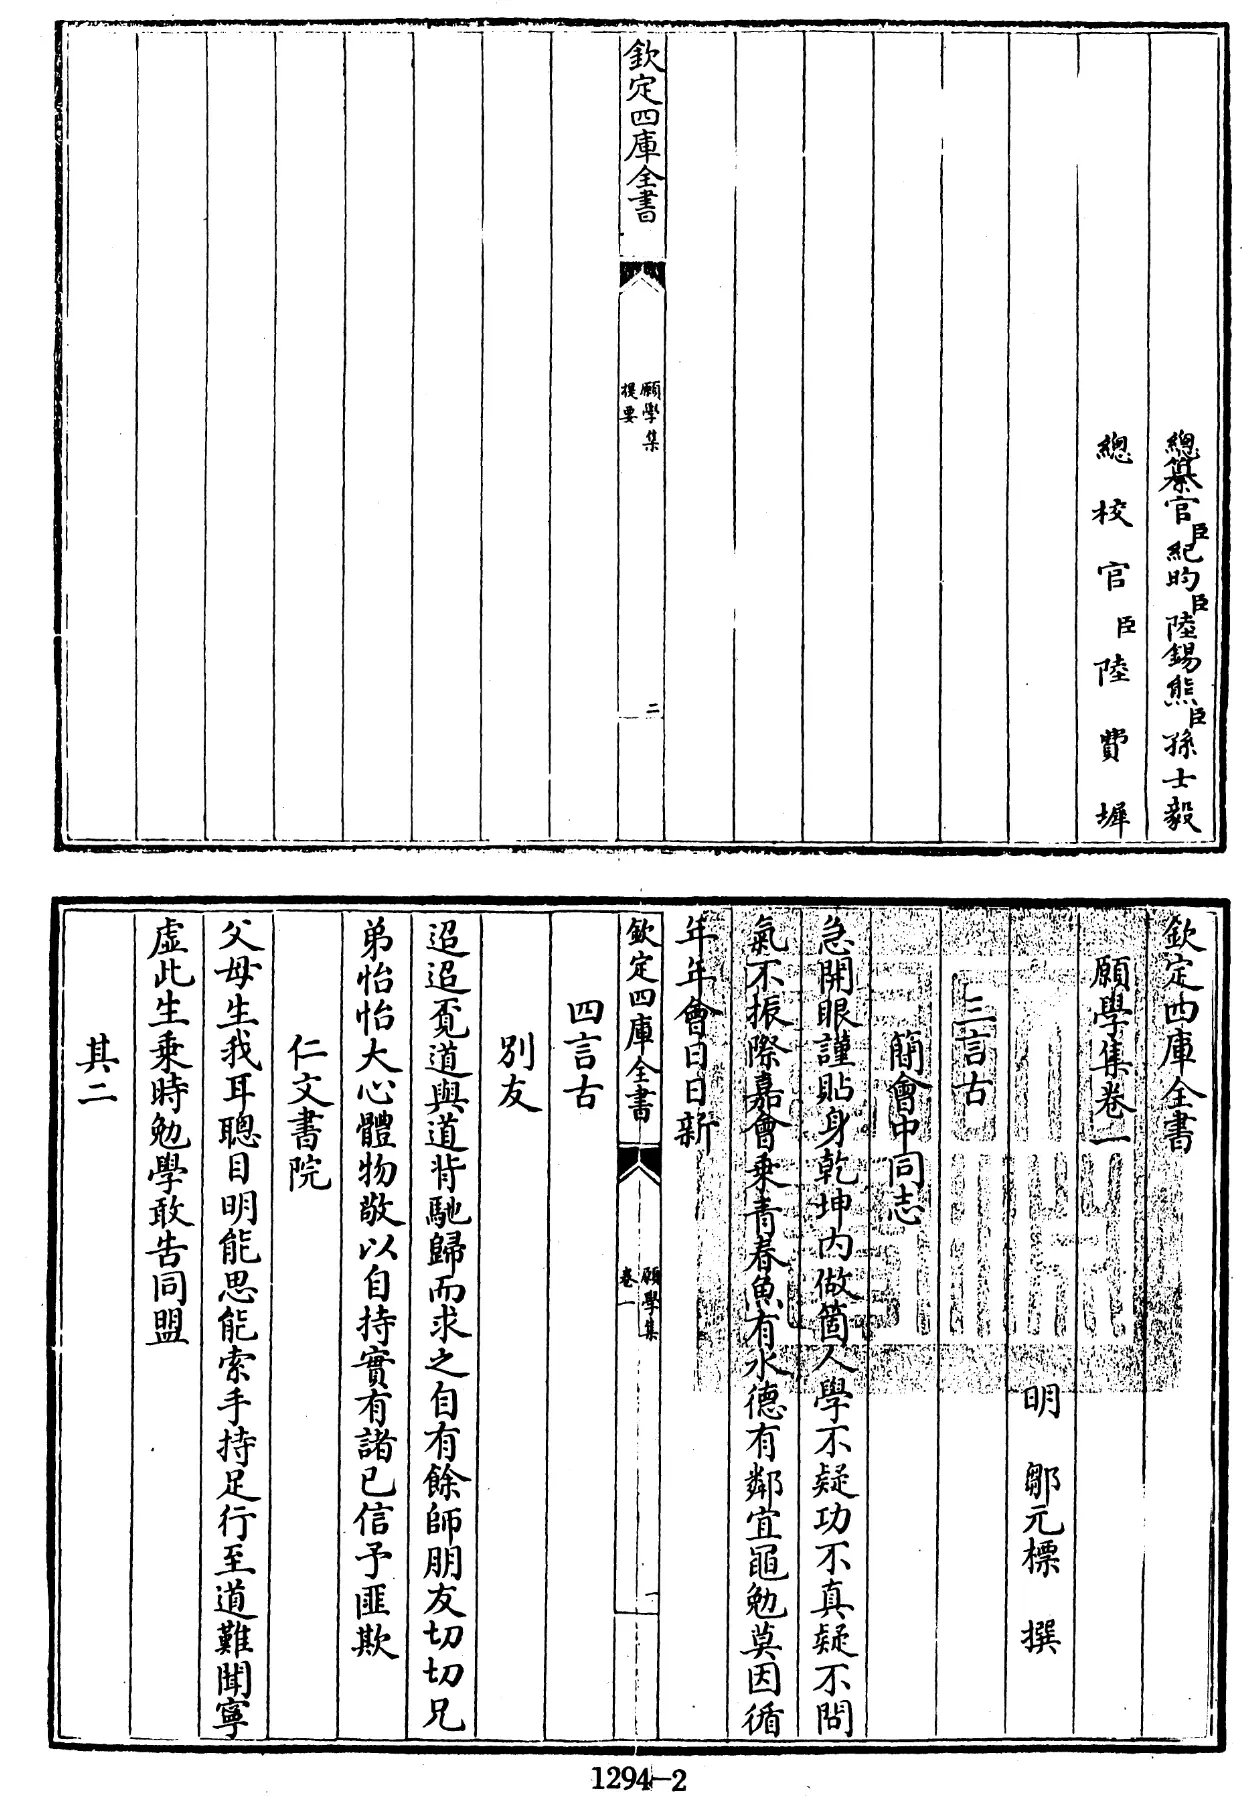 總纂官臣紀昀臣陸錫熊臣孫士毅
總校官臣陸費墀
欽定四庫全書
願學集
提要
二
欽定四庫全書
願學集卷一
明 鄒元標 撰
三言古
簡會中同志
急開眼謹貼身乾坤内做箇人學不疑功不真疑不問
氣不振際嘉會乗青春魚有水德有鄰宜黽勉莫因循
年年會日日新
欽定四庫全書
願學集
卷一
一
四言古
別友
迢迢覔道與道背馳歸而求之自有餘師朋友切切兄
弟怡怡大心體物敬以自持實有諸已信予匪欺
仁文書院
父母生我耳聰目明能思能索手持足行至道難聞寧
虛此生乗時勉學敢告同盟
其二
1294-2